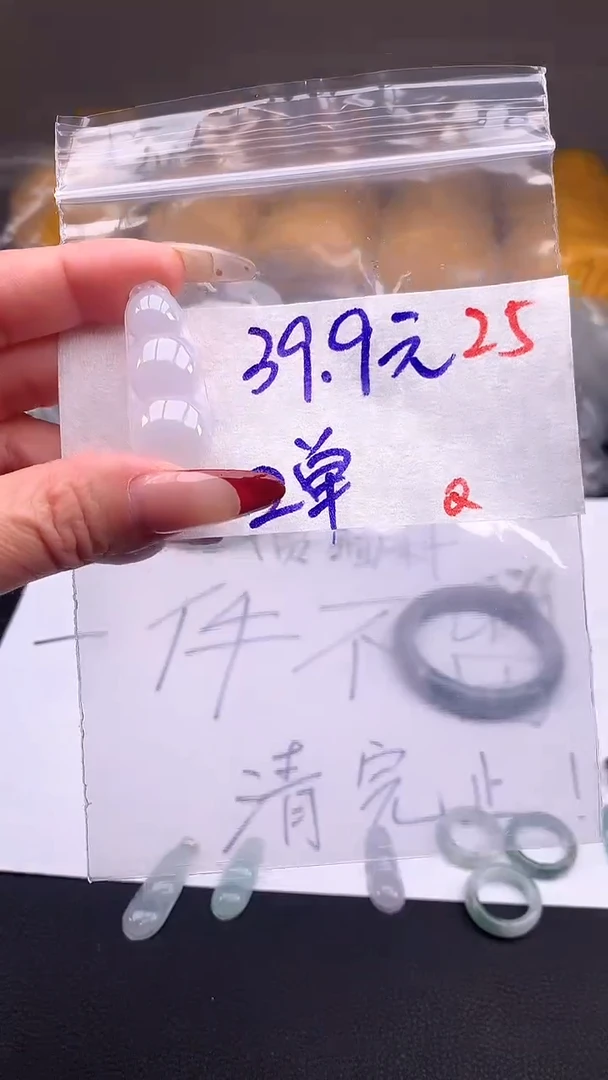 39.9元 25
2单 Q
一件不
清完止！